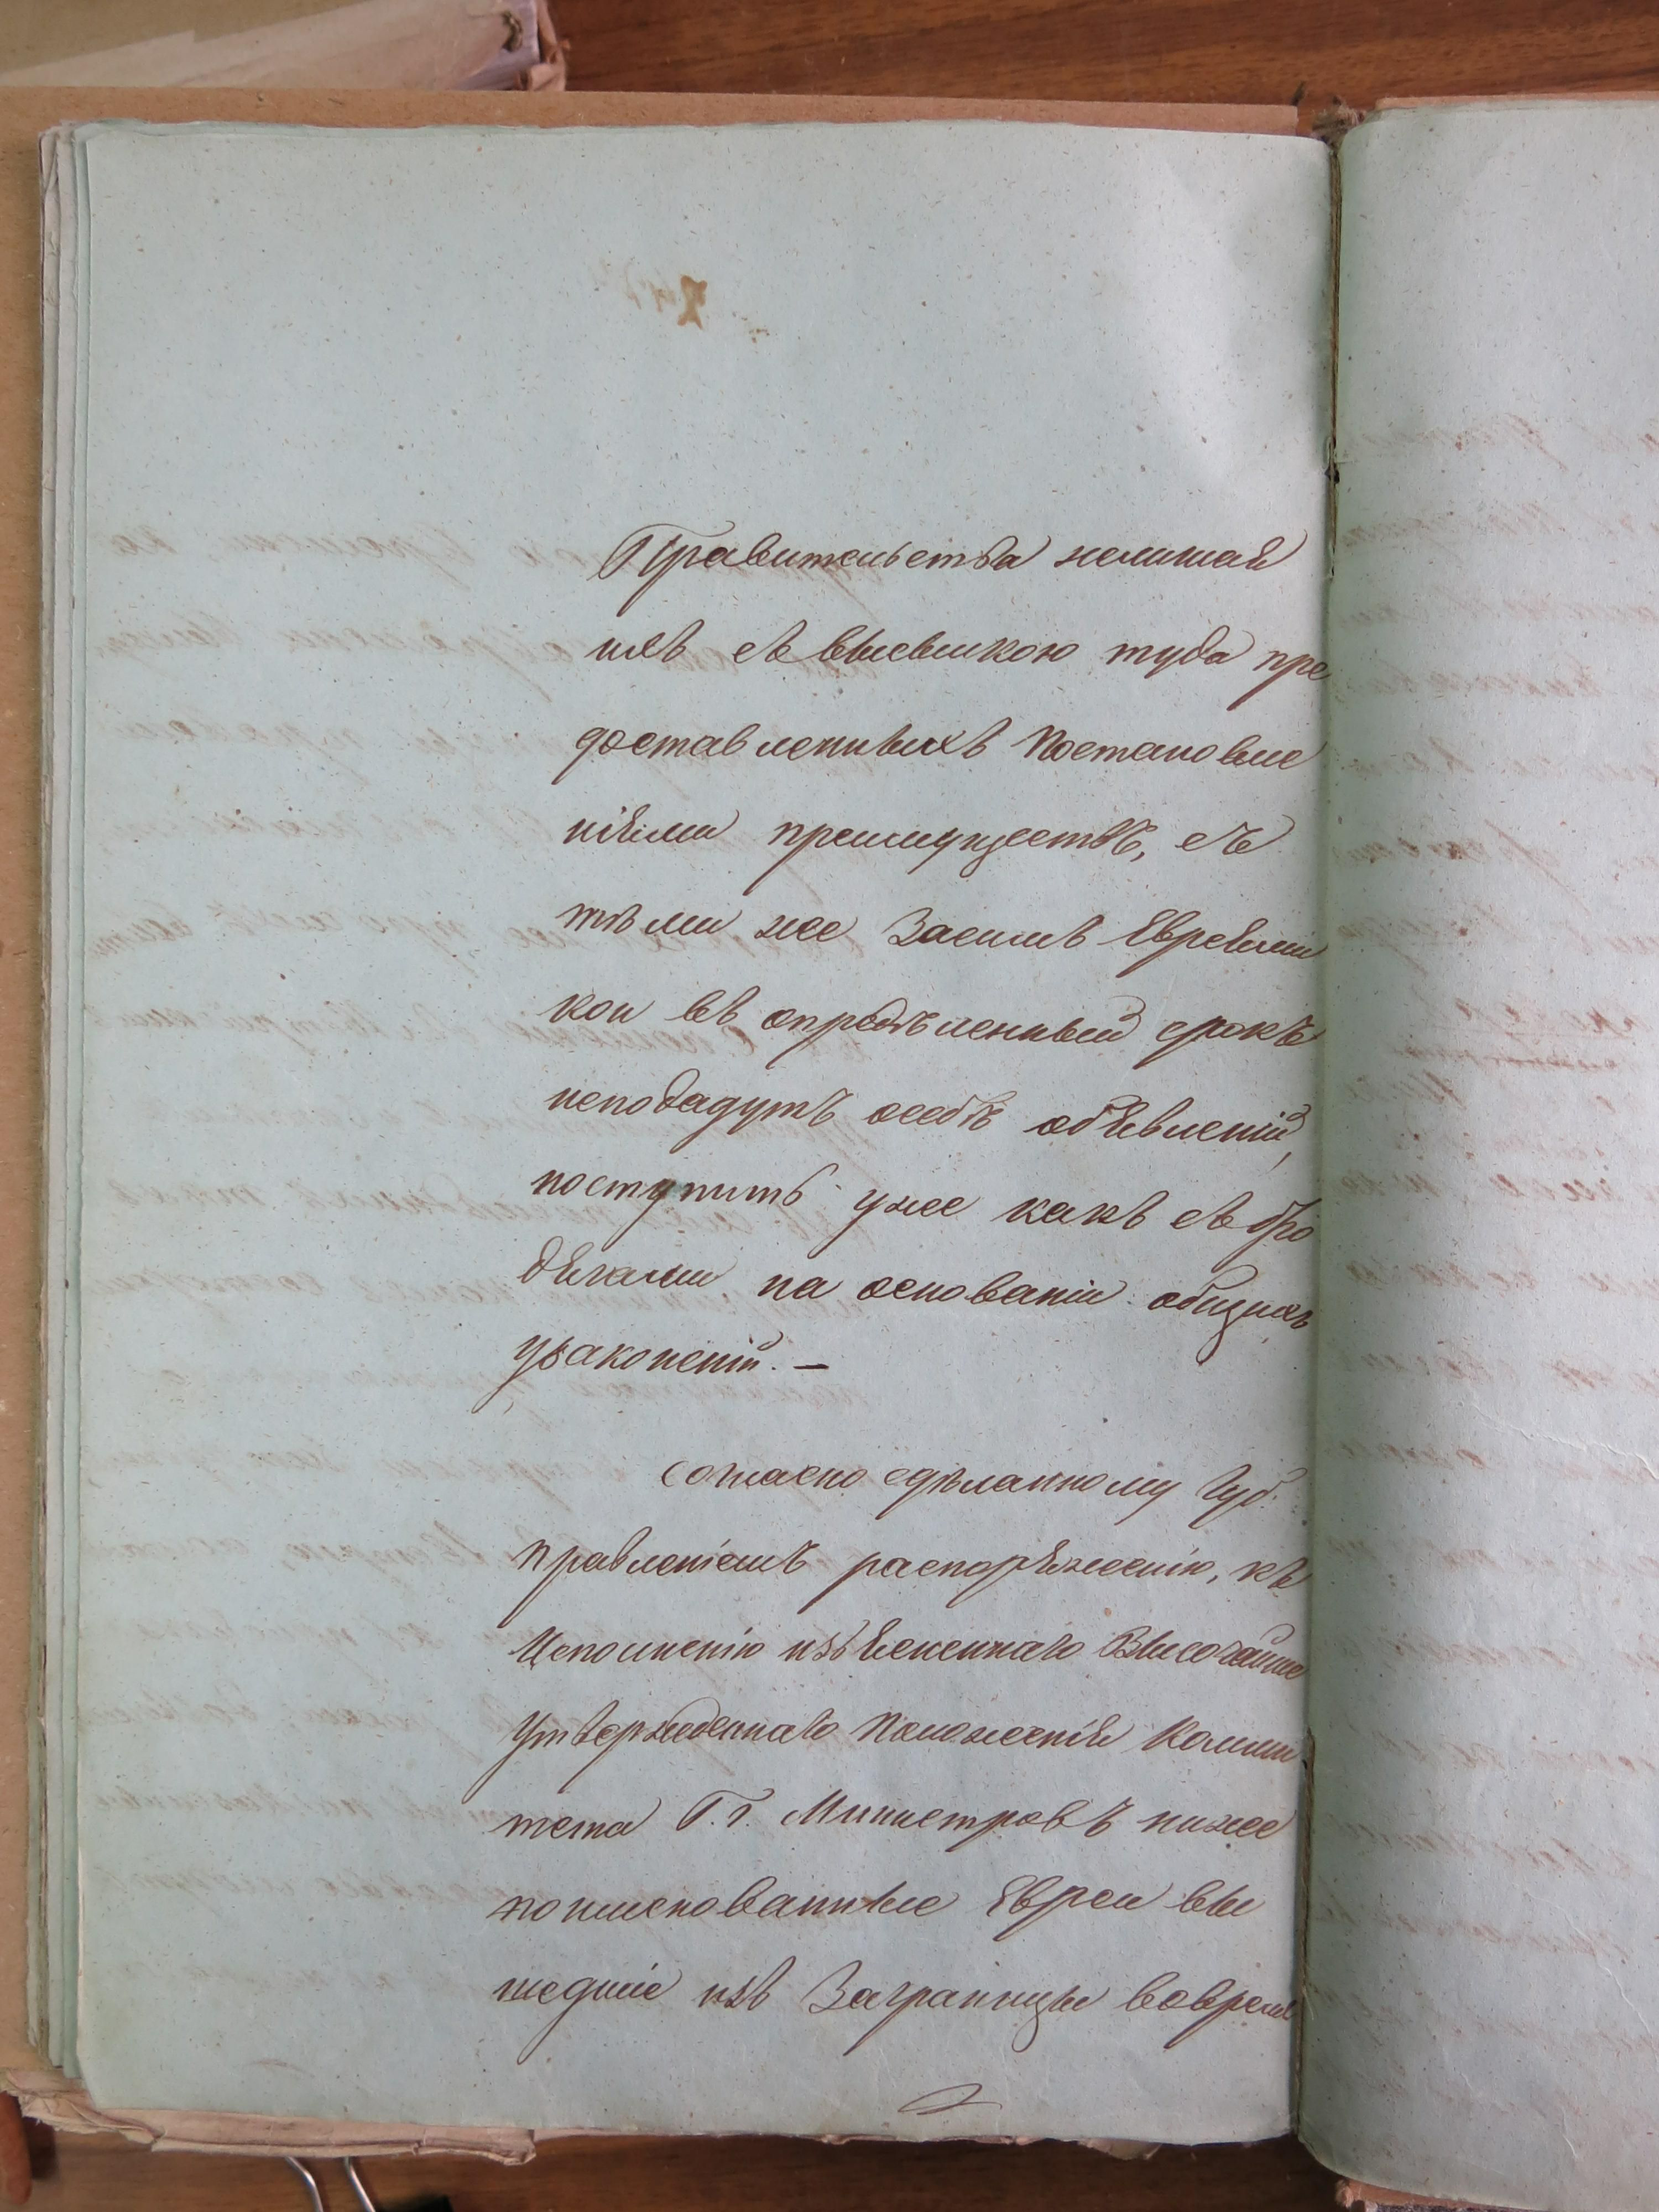 Правительства нелишая
ихъ съ высылкою туда пре
доставленныхъ постановле
ніями преимуществъ, съ
тѣми же Засимъ Евреями
кои въ опредѣленный срокъ
неподадутъ осебѣ объявленій,
поступить уже какъ съ бро
дягами на основаніи общихъ
узаконеній. —
Согласно сдѣланному Губ.
правленіемъ распоряженію, къ
Исполненію изъясненнаго Высочайше
Утвержденнаго Положенія Коми
тета Г.г. Министровъ ниже
поименованные Евреи вы
шедшіе изъ Заграницы вовремя